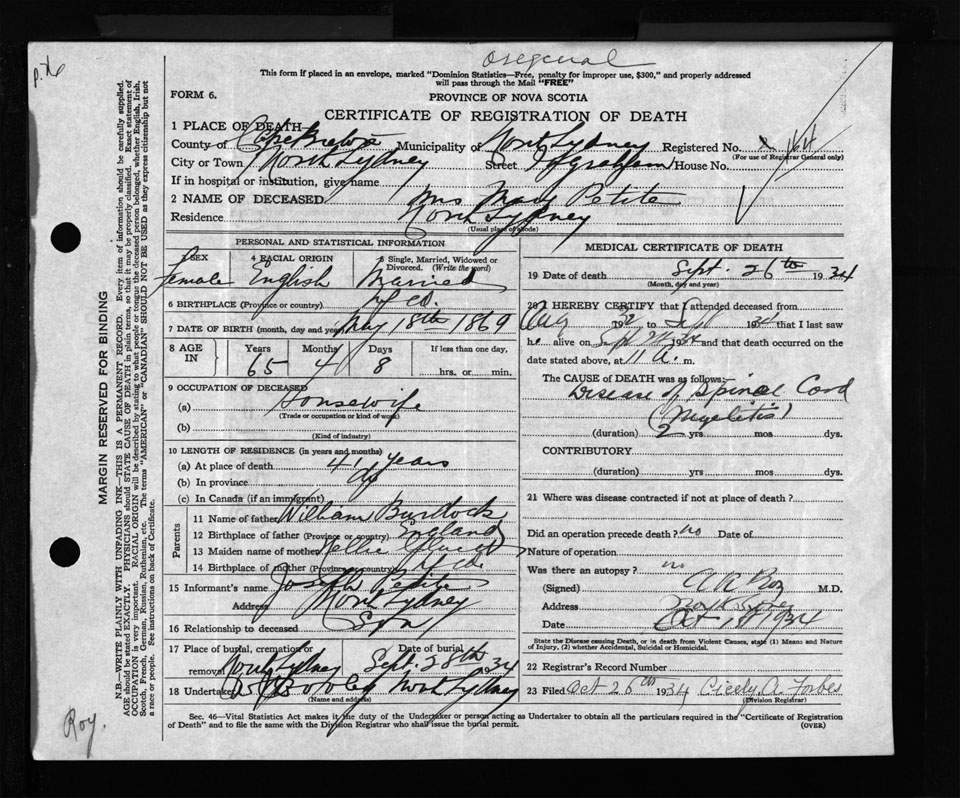 p.
Original
This form if placed in an envelope, marked "Dominion Statistics—Free, penalty for improper use, $300," and properly addressed
will pass through the Mail "FREE"
FORM 6.
PROVINCE OF NOVA SCOTIA
CERTIFICATE OF REGISTRATION OF DEATH
1 PLACE OF DEATH
County of Cape Breton Municipality of North Sydney Registered No. 164
(For use of Registrar General only)
City or Town North Sydney Street House No.
If in hospital or institution, give name
2 NAME OF DECEASED Mrs Mary Petite
Residence North Sydney
(Usual place of abode)
PERSONAL AND STATISTICAL INFORMATION
SEX 4 RACIAL ORIGIN 5 Single, Married, Widowed or Divorced. (Write the word)
Female English Married
6 BIRTHPLACE (Province or country) Nfld.
7 DATE OF BIRTH (month, day and year) May 18th 1869
8 AGE IN Years Months Days If less than one day,
65 4 8 hrs. or min.
9 OCCUPATION OF DECEASED
(a) Housewife
(Trade or occupation or kind of work)
(b)
(Kind of industry)
10 LENGTH OF RESIDENCE (in years and months)
(a) At place of death 41 years
(b) In province
(c) In Canada (if an immigrant)
Parents
11 Name of father William Burttock
12 Birthplace of father (Province or country) England
13 Maiden name of mother Nellie
14 Birthplace of mother (Province or country) Nfld.
15 Informant's name Joseph Petite
Address North Sydney
16 Relationship to deceased Son
17 Place of burial, cremation or removal North Sydney Date of burial Sept. 28th 1934
18 Undertaker North Sydney
(Name and address)
MEDICAL CERTIFICATE OF DEATH
19 Date of death Sept. 26th 1934
(Month, day and year)
20 I HEREBY CERTIFY that I attended deceased from
Aug 193 to Sept 193 that I last saw
h alive on Sept 1934 and that death occurred on the
date stated above, at 11 A. m.
The CAUSE OF DEATH was as follows:
Disease of Spinal Cord
(Myelitis)
(duration) 2 yrs mos dys.
CONTRIBUTORY
(duration) yrs mos dys.
21 Where was disease contracted if not at place of death?
Did an operation precede death? no Date of
Nature of operation
Was there an autopsy? no
(Signed) M.D.
Address North Sydney
Date Oct 1st 1934
State the Disease causing Death, or in death from Violent Causes, state (1) Means and Nature
of Injury, (2) whether Accidental, Suicidal or Homicidal.
22 Registrar's Record Number
23 Filed Oct 26th 1934 Cicely A. Forbes
(Division Registrar)
Sec. 46—Vital Statistics Act makes it the duty of the Undertaker or person acting as Undertaker to obtain all the particulars required in the "Certificate of Registration
of Death" and to file the same with the Division Registrar who shall issue the burial permit.
(OVER)
MARGIN RESERVED FOR BINDING
N.B.—WRITE PLAINLY WITH UNFADING INK—THIS IS A PERMANENT RECORD. Every item of information should be carefully supplied.
AGE should be stated EXACTLY. PHYSICIANS should STATE CAUSE OF DEATH in plain terms, so that it may be properly classified. Exact statement of
OCCUPATION is very important. RACIAL ORIGIN will be described by stating to what people or tongue the deceased person belonged, whether English, Irish,
Scotch, French, German, Russian, Ruthenian, etc. The terms "AMERICAN" or "CANADIAN" SHOULD NOT BE USED as they express citizenship but not
a race or people. See instructions on back of Certificate.
Roy.